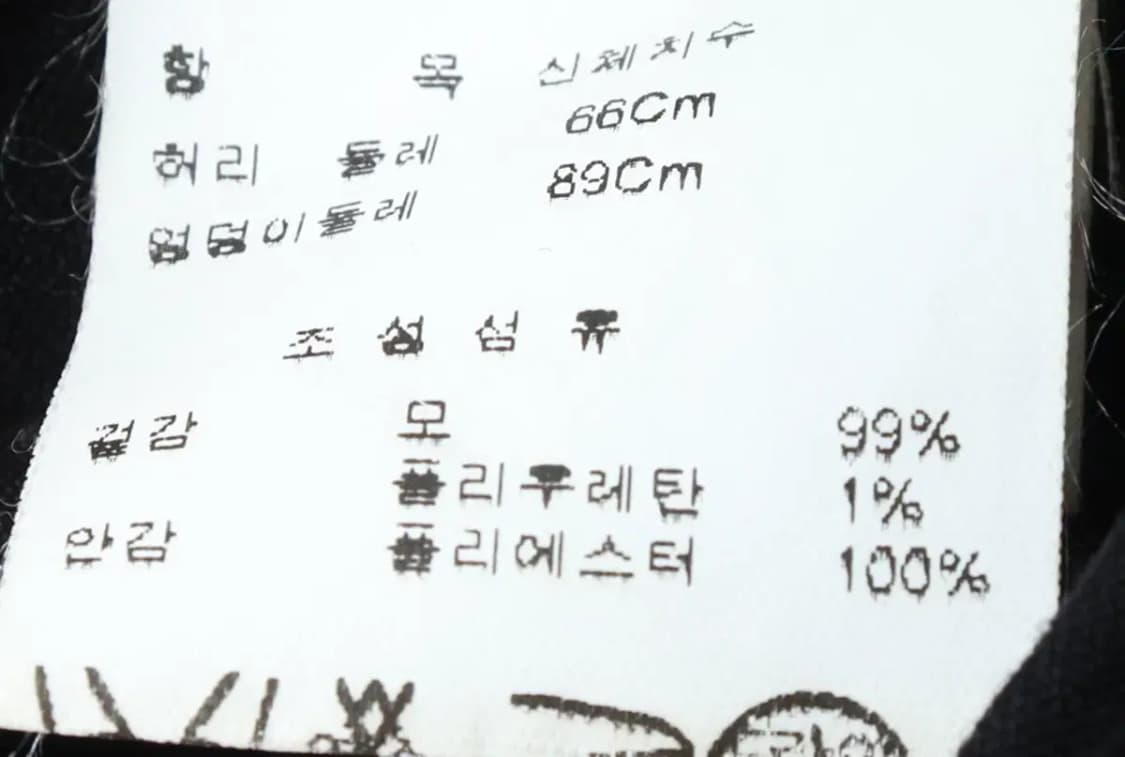 항 목 신체치수
허리 둘레 66Cm
엉덩이둘레 89Cm
조성섬유
겉감 모 99%
폴리우레탄 1%
안감 폴리에스터 100%